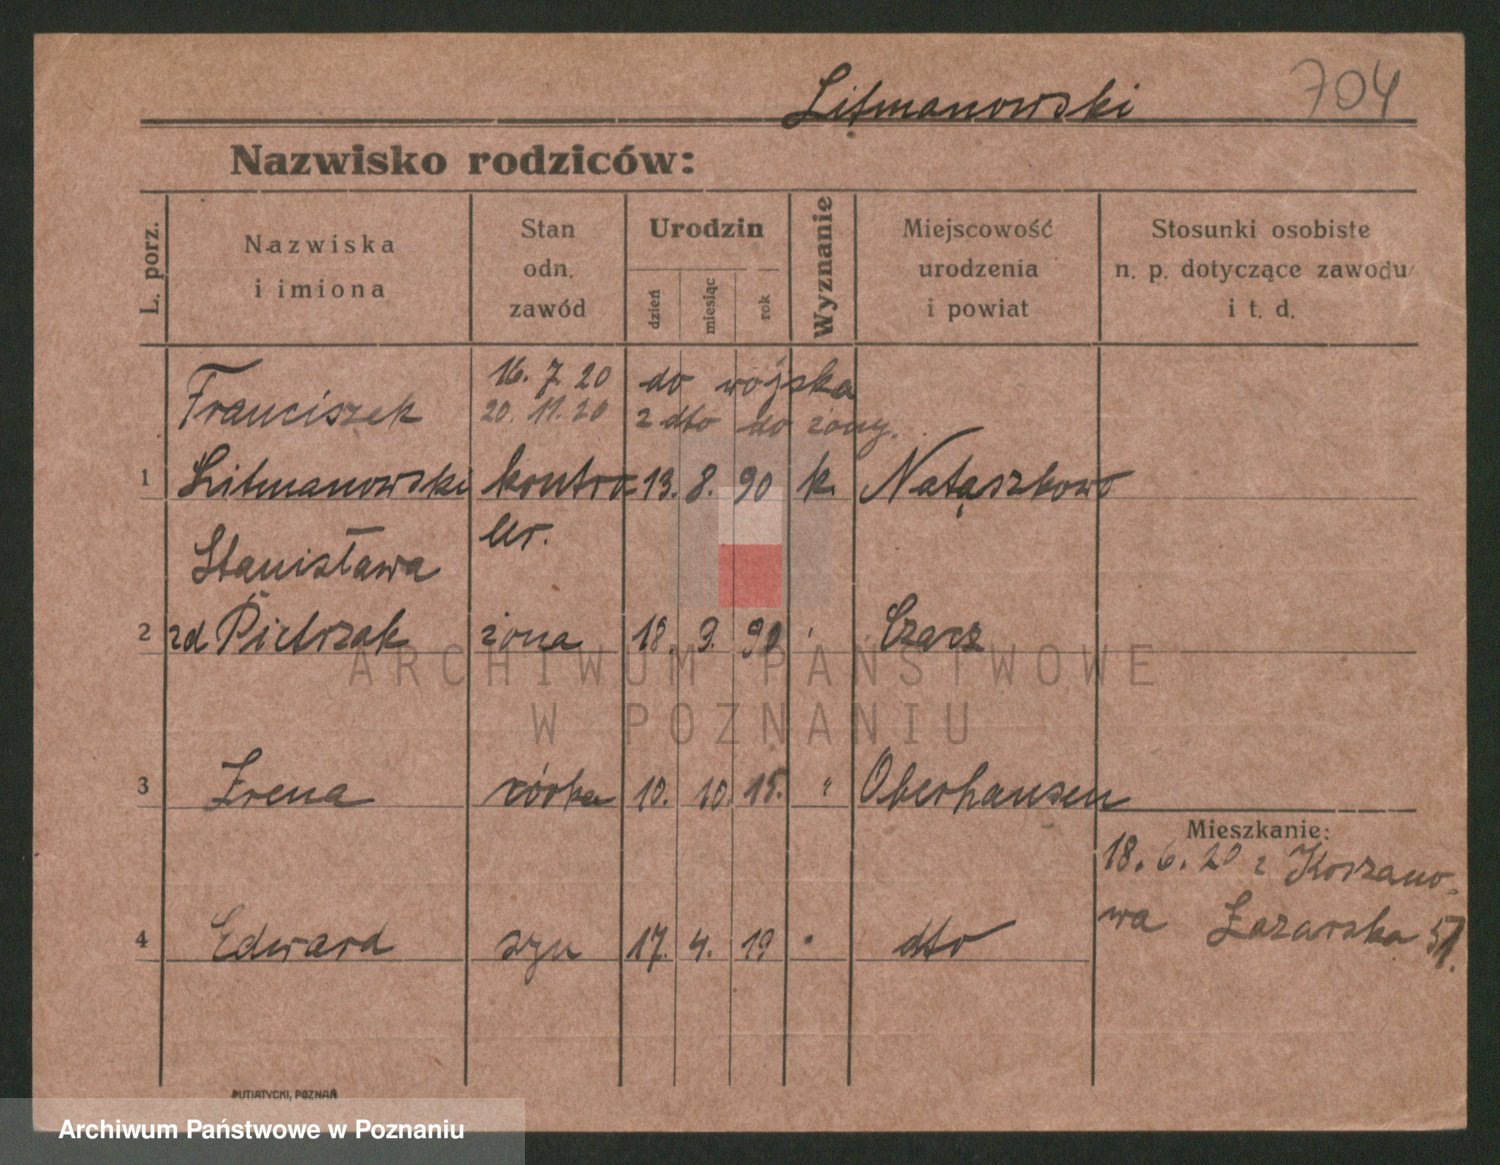 Litmanowski 704
Nazwisko rodziców:
L. porz.
Nazwiska
i imiona
Stan
odn.
zawód
Urodzin
dzień
miesiąc
rok
Wyznanie
Miejscowość
urodzenia
i powiat
Stosunki osobiste
n. p. dotyczące zawodu
i t. d.
16. 7. 20 do wojska
Franciszek 20. 11. 20 z dto do żony.
1 Litmanowski kontro- 13. 8. 90 k. Natąszkowo
ler.
Stanisława
2 zd Pietrzak żona 18. 9. 90 Czacz
ARCHIWUM PAŃSTWOWE
W POZNANIU
3 Irena córka 10. 10. 15. " Oberhausen
Mieszkanie:
18. 6. 20 z Koszano-
wa Łazarska
4 Edward syn 17. 4. 19 " dto
PUTIATYCKI, POZNAŃ
Archiwum Państwowe w Poznaniu